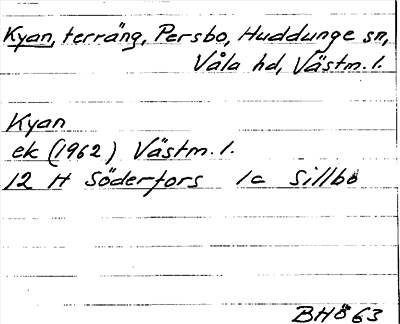 Kyan, terräng, Persbo, Huddunge sn,
Våla hd, Västm. l.
Kyan
ek (1962) Västm. l.
12 H Söderfors 1c Sillbo
BHÖ 63